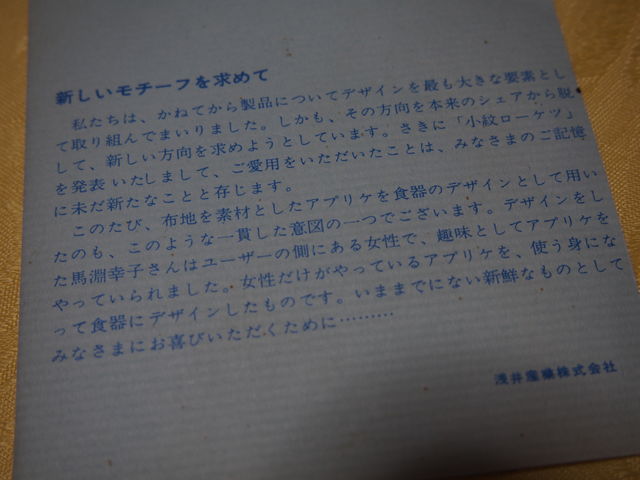 新しいモチーフを求めて
私たちは、かねてから製品についてデザインを最も大きな要素とし
て取り組んでまいりました。しかも、その方向を本来のシェアから脱
して、新しい方向を求めようとしています。さきに「小紋ローケツ」
を発表いたしまして、ご愛用をいただいたことは、みなさまのご記憶
に未だ新たなことと存じます。
このたび、布地を素材としたアプリケを食器のデザインとして用い
たのも、このような一貫した意図の一つでございます。デザインをし
た馬淵幸子さんはユーザーの側にある女性で、趣味としてアプリケを
やっていられました。女性だけがやっているアプリケを、使う身にな
って食器にデザインしたものです。いままでにない新鮮なものとして
みなさまにお喜びいただくために………
浅井産業株式会社